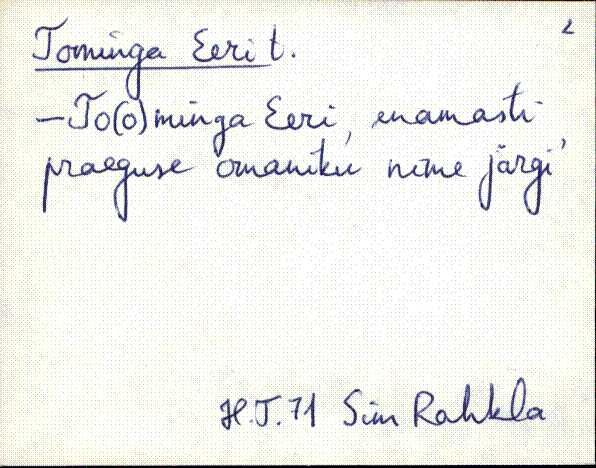 2
Tominga Eeri t.
—To(o)minga Eeri, enamasti
praeguse omaniku nime järgi
H.T. 71 Sim Rahkla